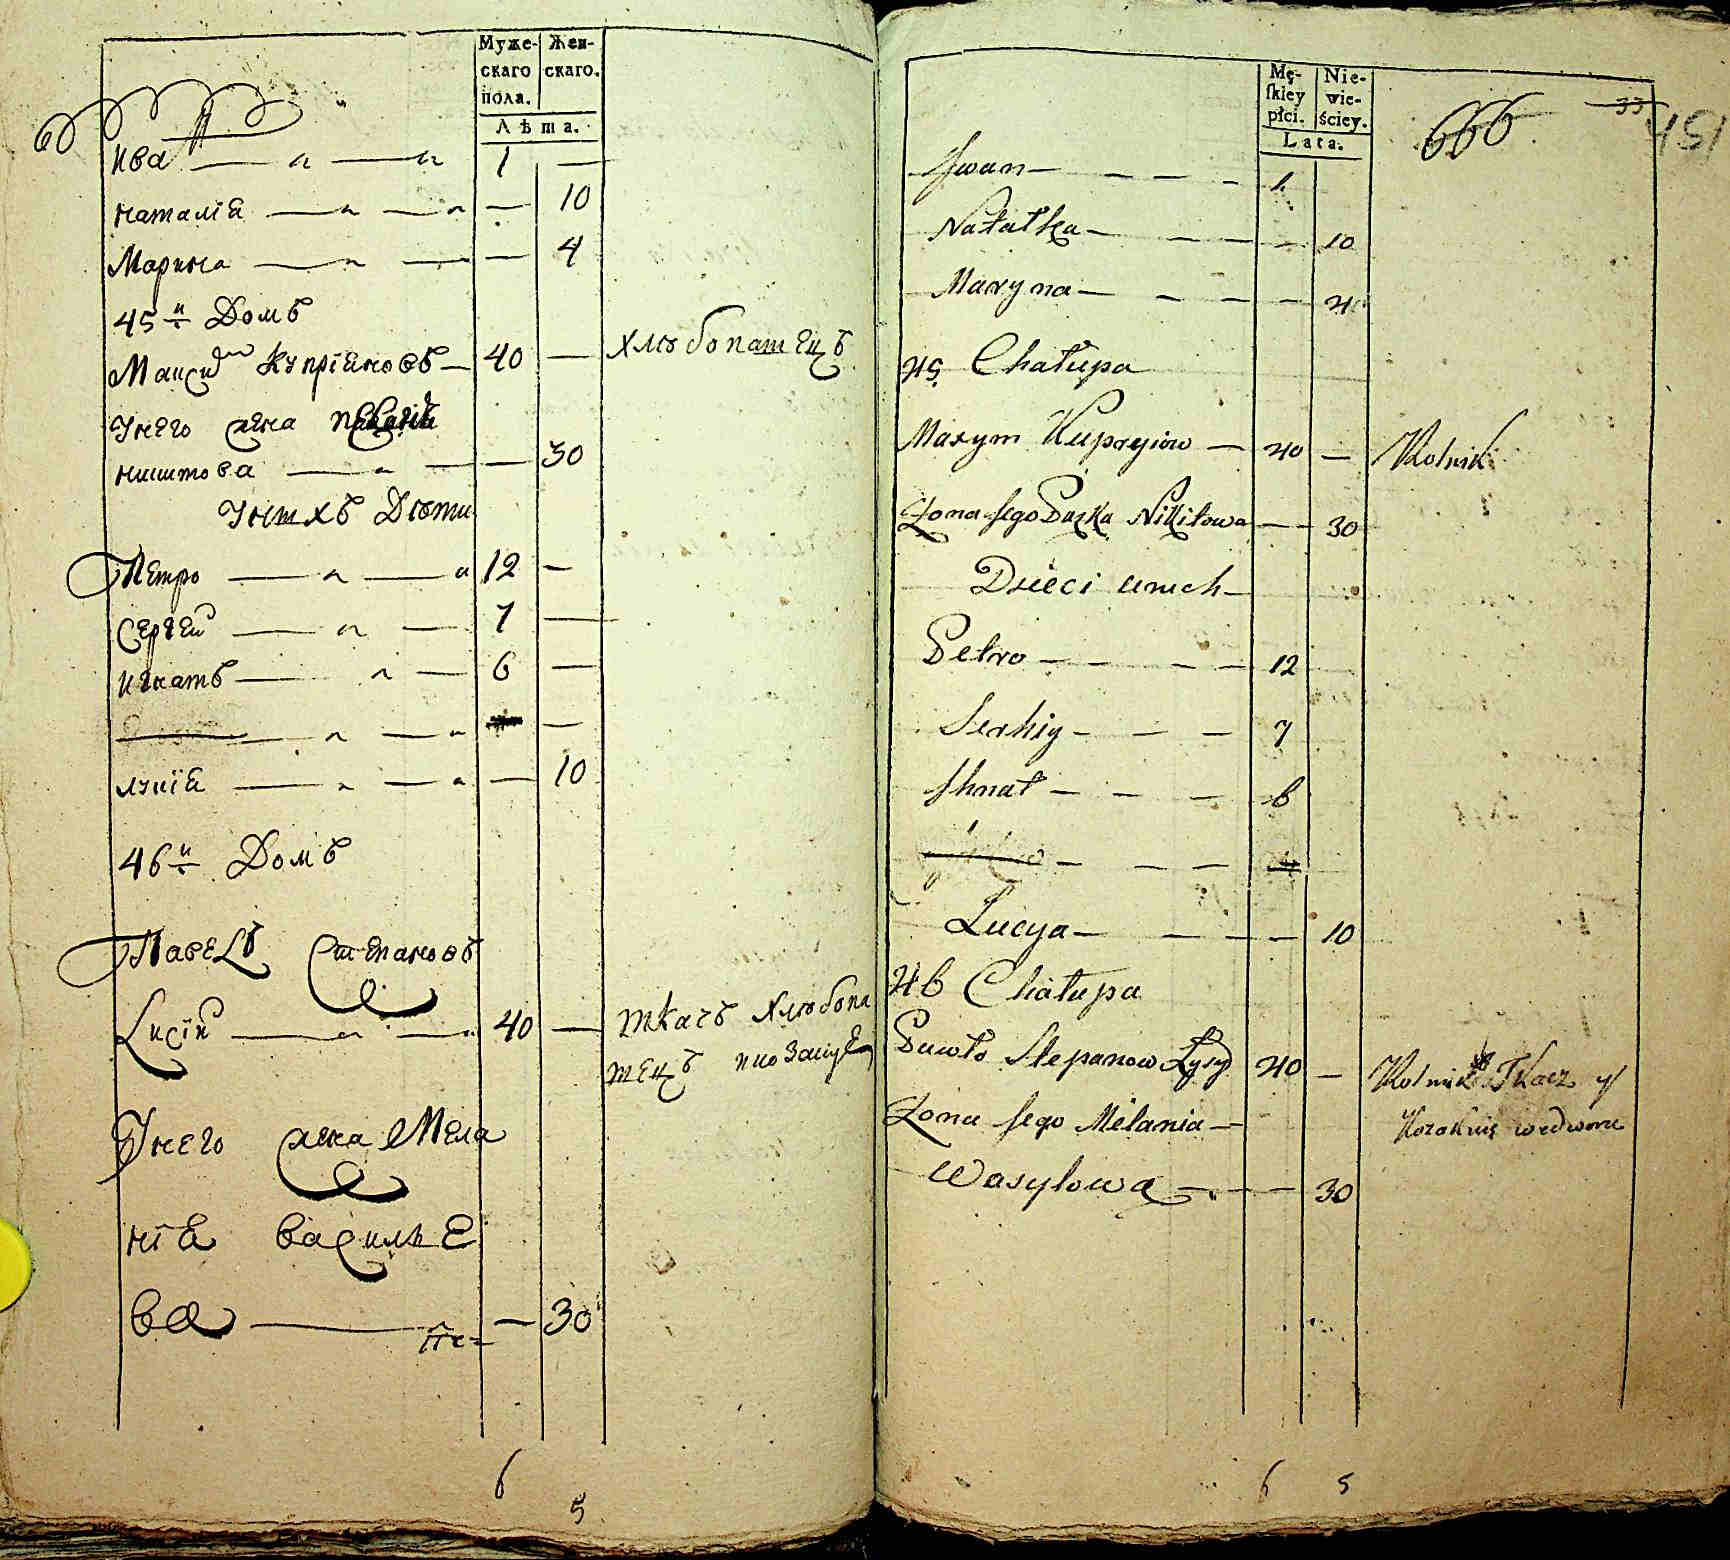 Муже-
скаго
пола.
Жен-
скаго.
Лѣта.
Ива 1
наталїа 10
Марина 4
45й Домъ
Маѯим Купрїяновъ 40 хлѣбопатецъ
Унего жена
никитова 30
Унихъ Дѣти
Петро 12
Сергей 7
игнатъ 6
лукїа 10
46й Домъ
Павелъ Степановъ
Лисїй 40 ткачъ хлѣбопа
тецъ
Унего жена Мела
нїа василье
ва 30
6
5
Mę-
skiey
płci.
Nie-
wie-
ściey.
Lata.
666
33
151
Iwan 1
Natałka 10
Maryna 4
45 Chałupa
Maxym Kupryiow 40 Rolnik
Żona Jego Paska Nikitowa 30
Dzieci unich
Petro 12
Serhiy 7
Ihnat 6
4
Łucya 10
46 Chałupa
Pawło Stepanow Łysy 40 Rolnik Tkacz y
Żona Jego Mełania
Wasylowa 30
6 5